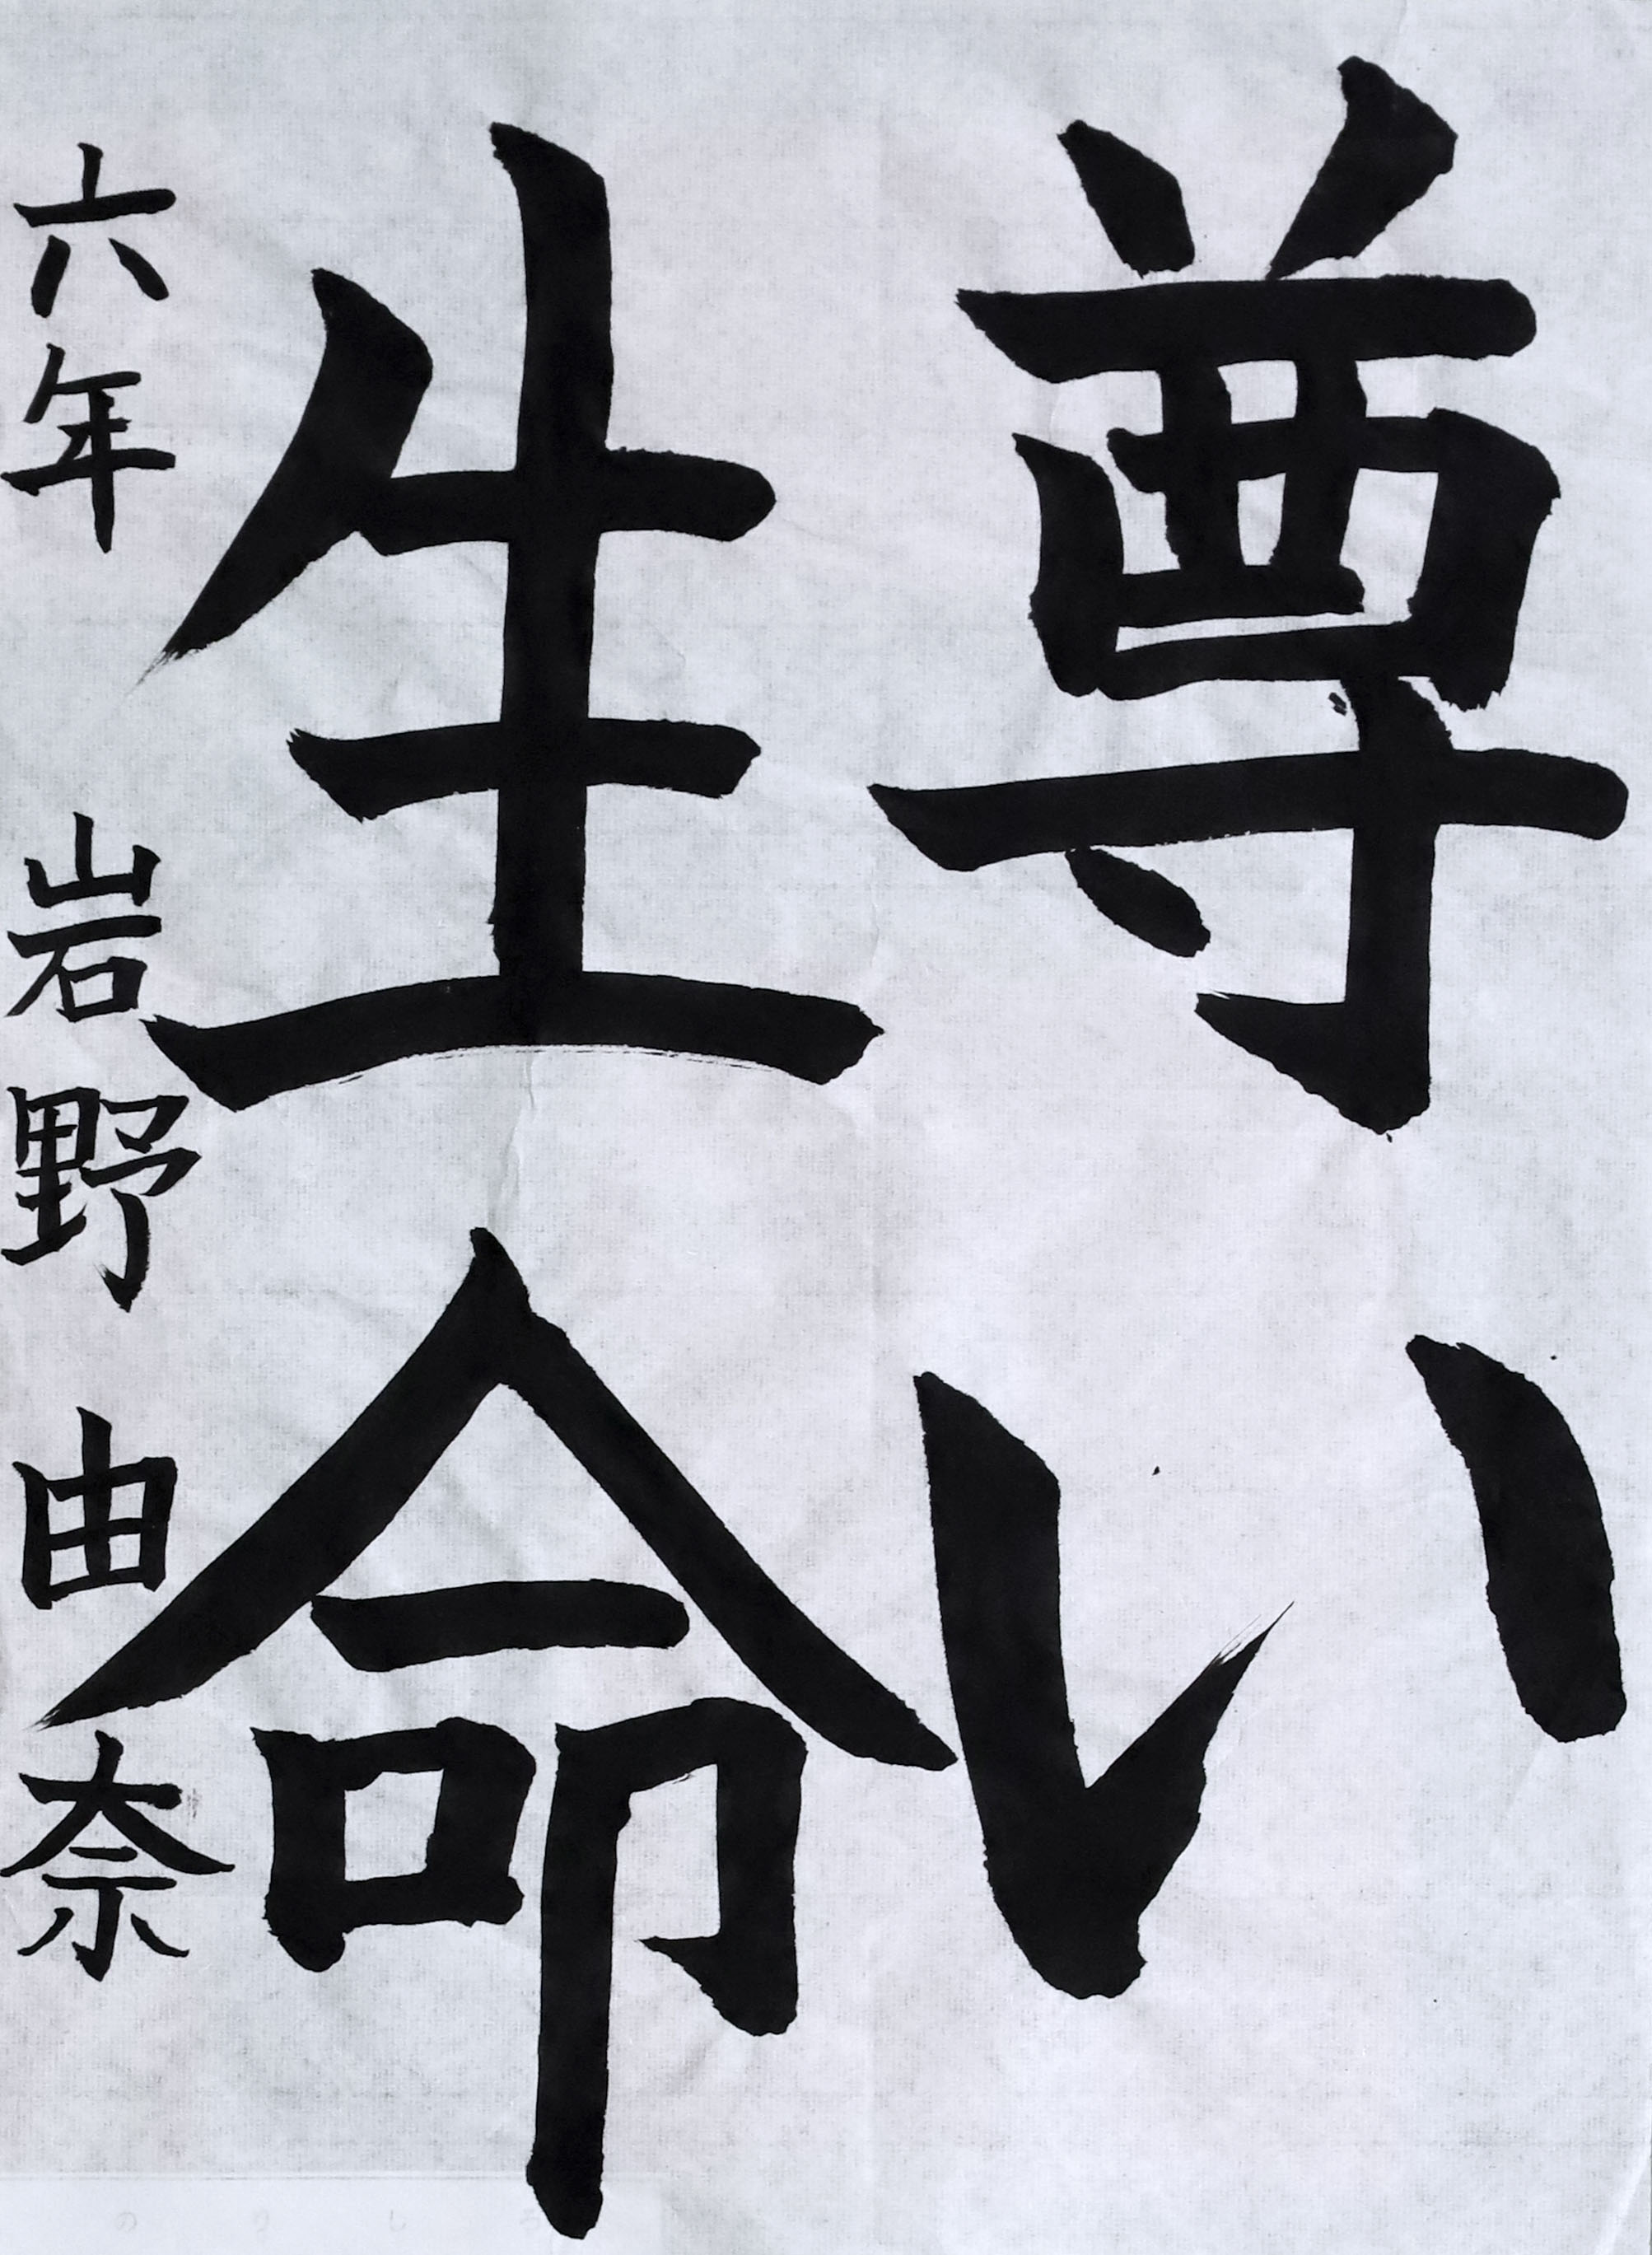 尊い
生命
六年 岩野由奈